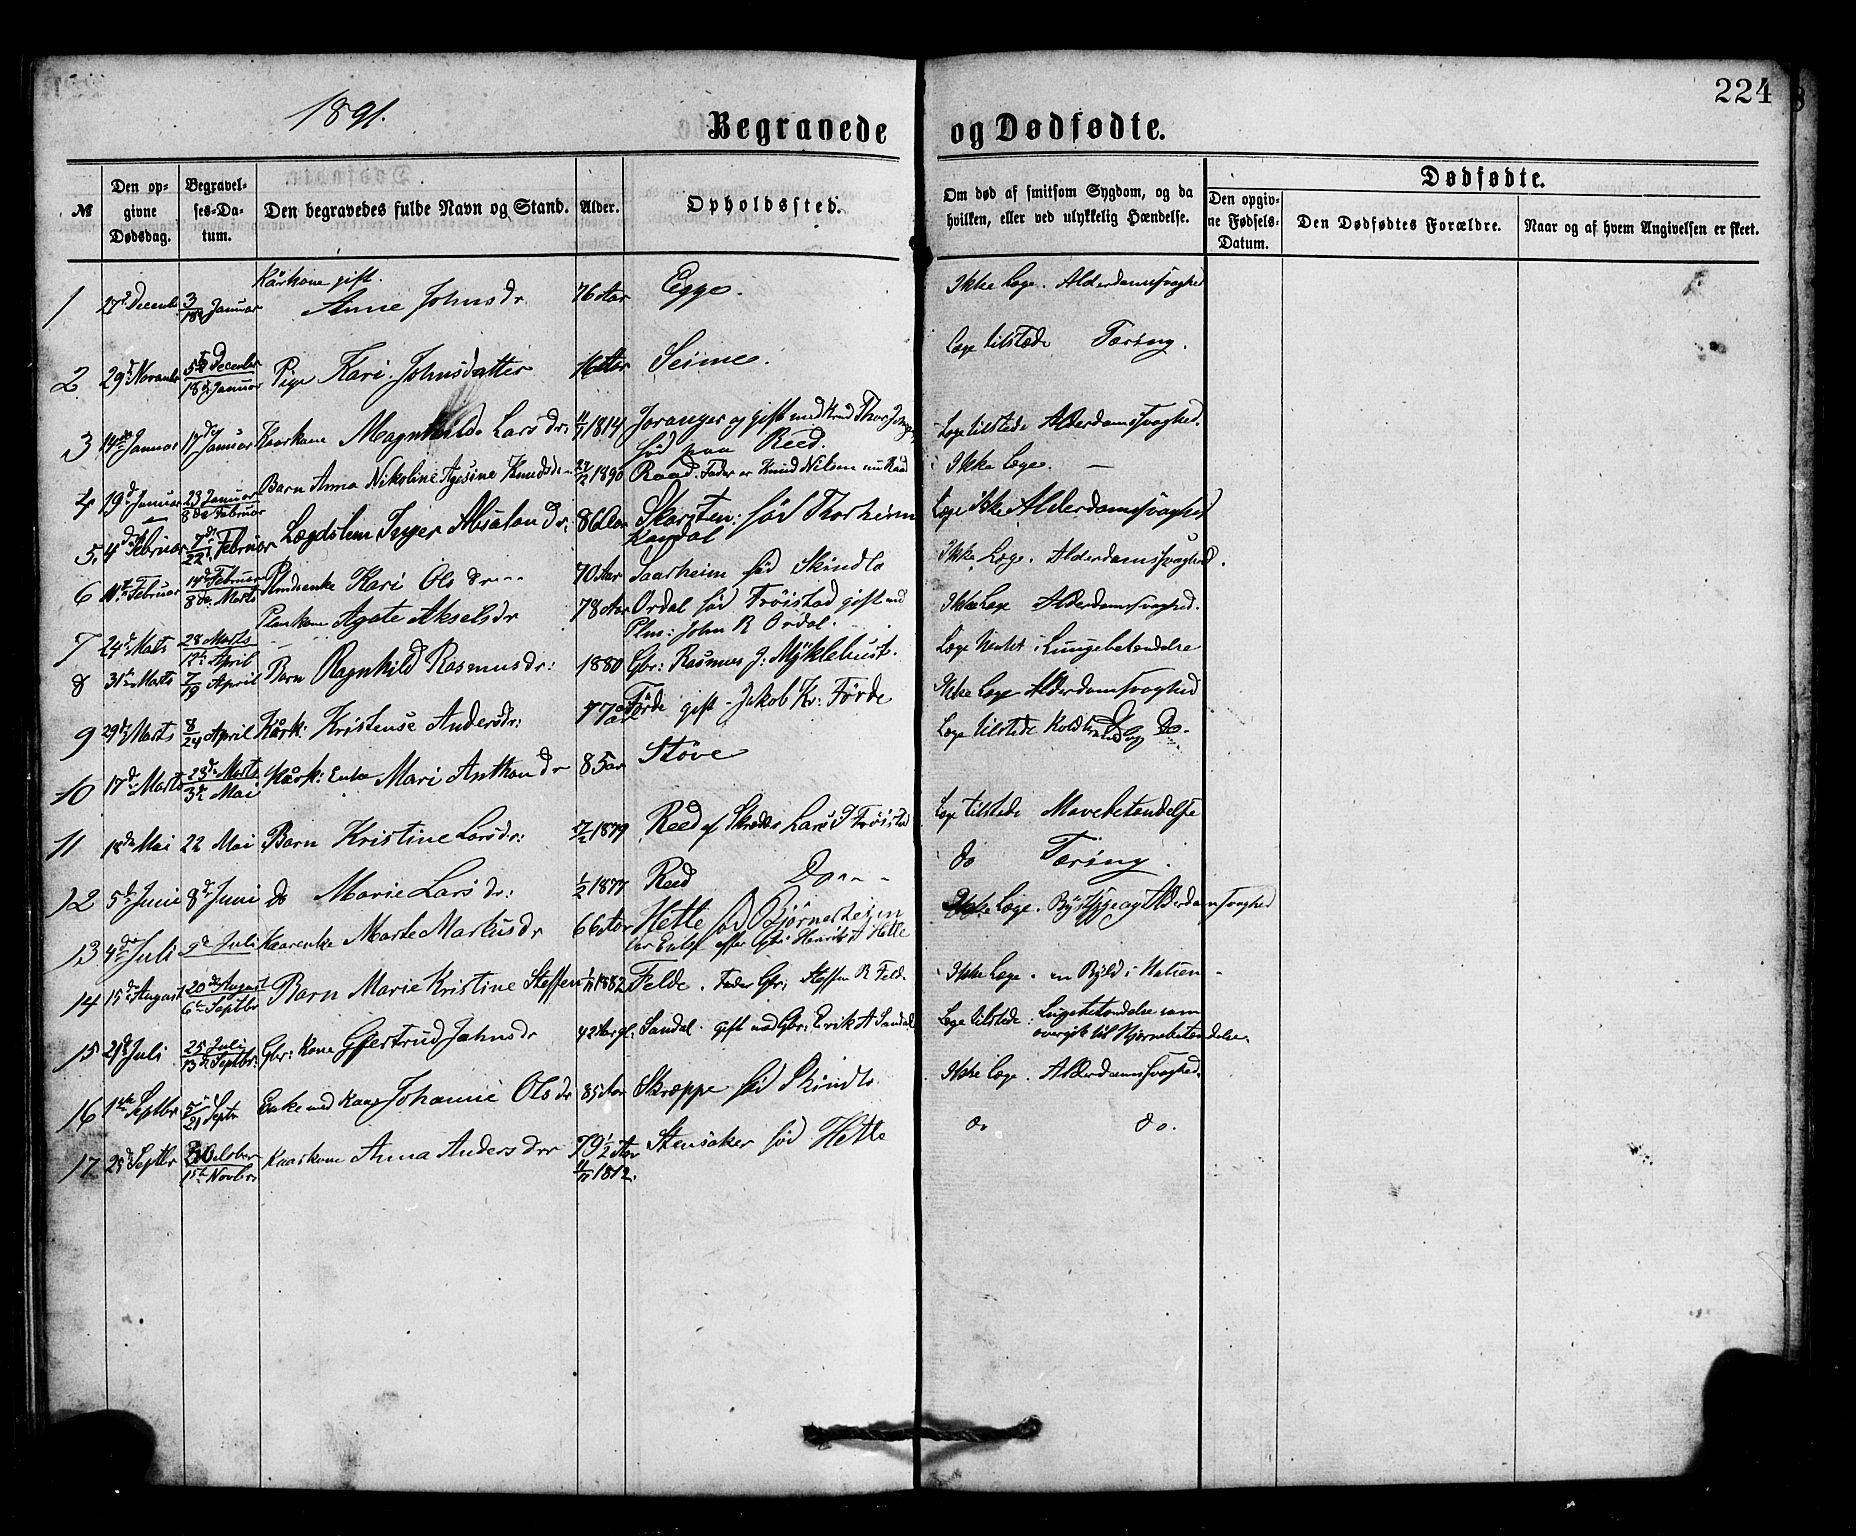 224
1891.
Begravede og Dødfødte.
№
Den opgivne Dødsdag.
Begravelses-Datum.
Den begravedes fulde Navn og Stand.
Alder.
Opholdssted.
Om død af smitsom Sygdom, og da hvilken, eller ved ulykkelig Hændelse.
Dødfødte.
Den opgivne Fødsels-Datum.
Den Dødfødtes Forældre.
Naar og af hvem Angivelsen er skeet.
1 27de Decembr 3/18 Januar Kårkone gift. Anne Johnsdr 76 Aar Egge. Ikke Læge. Alderdomssvaghed
2 29de Novembr 5te Decembr 18de Januar Pige Kari Johnsdatter 16 Aar Seime. Læge tilstede Tæring.
3 14de Januar 17de Januar Kaarkone Magnhilde Larsdr: 1814 Joranger og gift med Knud
født paa Reed. Læge tilstede Alderdomssvaghed.
4 19de Januar 23 Januar 8de Februar Barn Anna Nikoline Knudsdr 1890 Raad. Fader er Knud Nilsen Ikke Læge. —
5 4de Februar 7de 22 Februar Lægdslem Inger Absalondr: 86 Aar Skarsten: fød Thorheim Læge ikke Alderdomssvaghed
6 Februar 14de Februar 8de Marts Kari Olsdr 70 Aar Saarheim fød Skindlo Ikke Læge. Alderdomssvaghed.
7 24de Marts 28 Marts April Agate Akselsdr 78 Aar Ordal fød Frøistad gift med
Plm: John R Ordal. Ikke Læge Alderdomssvaghed.
8 31te Marts 7/19 April Barn Ragnhild Rasmusdr: 1880 Gbr: Rasmus J: Myklebust. Læge Lungebetændelse
9 29de Marts 8/24 April Kårk: Kristense Andersdr: 77 aar Førde gift - Jakob Kr: Førde Ikke Læge Alderdomssvaghed
10 17de Marts 23de Marts 3de Mai Kårk: Enke Mari Anthondr 85 aar Støve Læge tilstede Koldbrand og Do.
11 18de Mai 22 Mai Barn Kristine Larsdr: 1879 Reed af Lars J Frøistad Læge tilstede Mavebetændelse
12 5te Juni 8de Juni do Marie Larsdr: 1/2 1877 Reed Do do Tæring.
13 4de Juli 9de Juli Kaarenke Marte Markusdr 66 Aar Hette fød Bjørnereim
er Enke efter Gbr Henrik A Hette Ikke Læge. Brystsyge og Alderdomssvaghed
14 15de August 20de August 6te Septbr Barn Marie Kristine Steffen 1882 Felde. Fader Gbr: Steffen R Felde Ikke Læge. en Byld i Halsen
15 21de Juli 25 Juli 13de Septbr: Gbr: Kone Gjertrud Johnsdr 42 Aar gl. Sandal. gift med Gbr: Erik A Sandal Læge tilstede: Lugebetændelse som
overgik til Hjernebetændelse.
16 1ste Septbr 5/21 Septr Enke ved Kaar Johanne Olsdr 85 Aar Skræppe fød Skindlo Ikke Læge. Alderdomssvaghed.
17 25de Septbr Oktober 15de Novbr: Kaarkone Anna Andersdr 79 1/2 Aar
1812. Stensaker fød Hette do do.